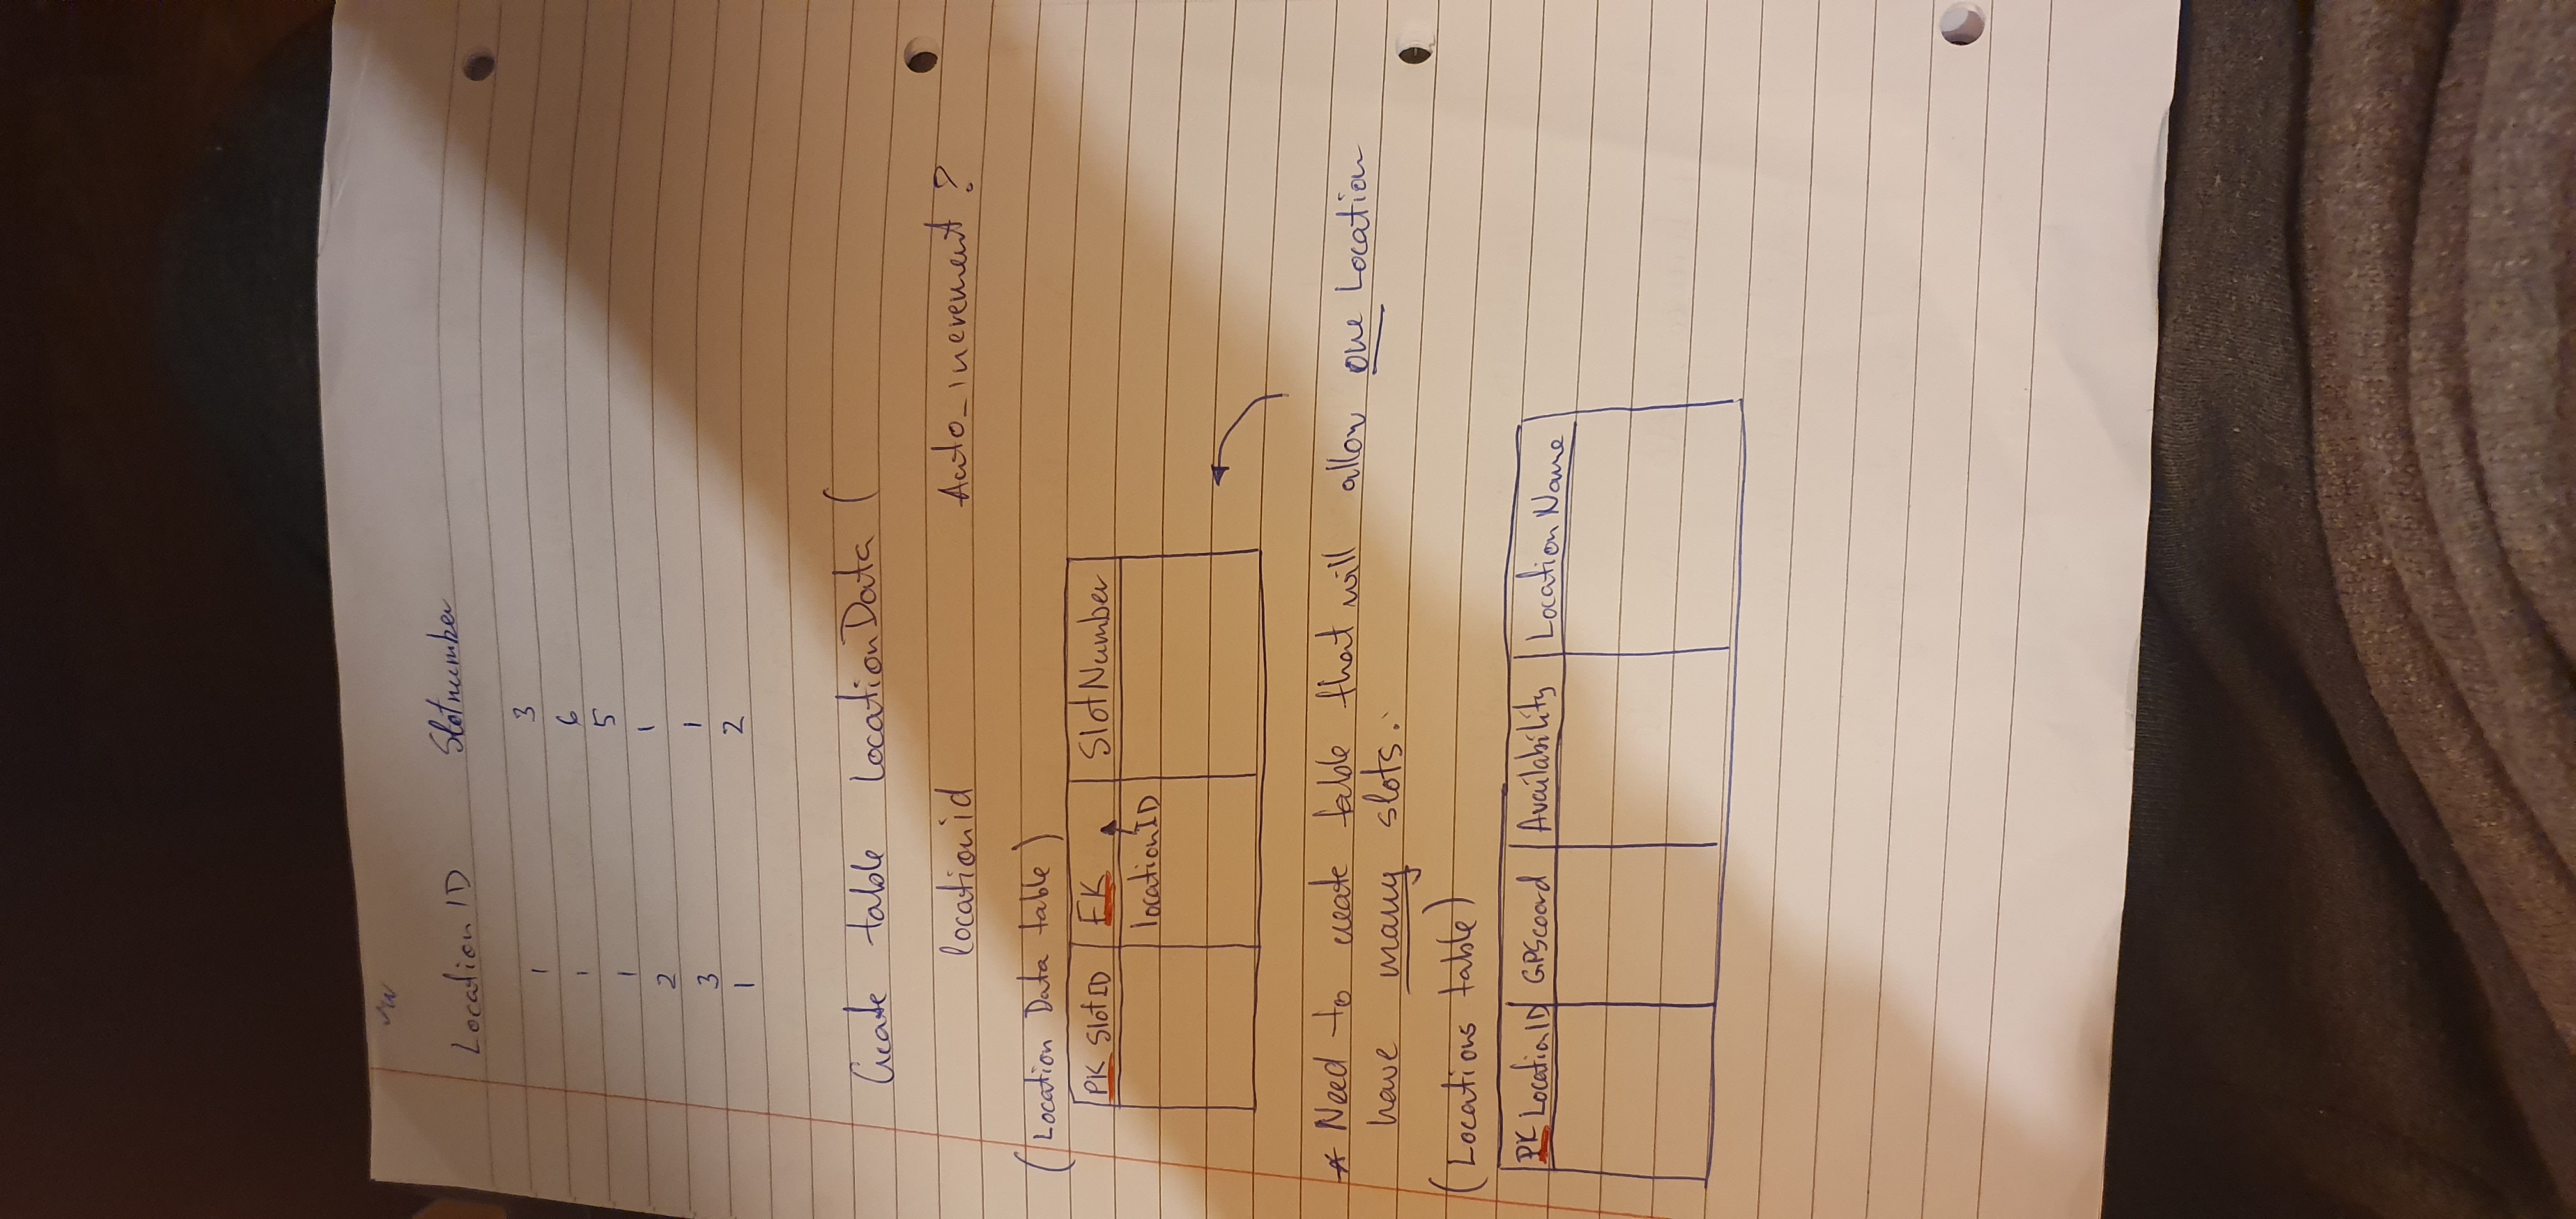 Location ID Slotnumber
1 3
1 6
1 5
2 1
3 1
1 2
Create table LocationData (
locationid Auto_increment ?
(Location Data table)
PK SlotID FK SlotNumber
locationID
* Need to create table that will allow one Location
have many slots.
(Locations table)
PK LocatioID GPScoord Availability Location Name